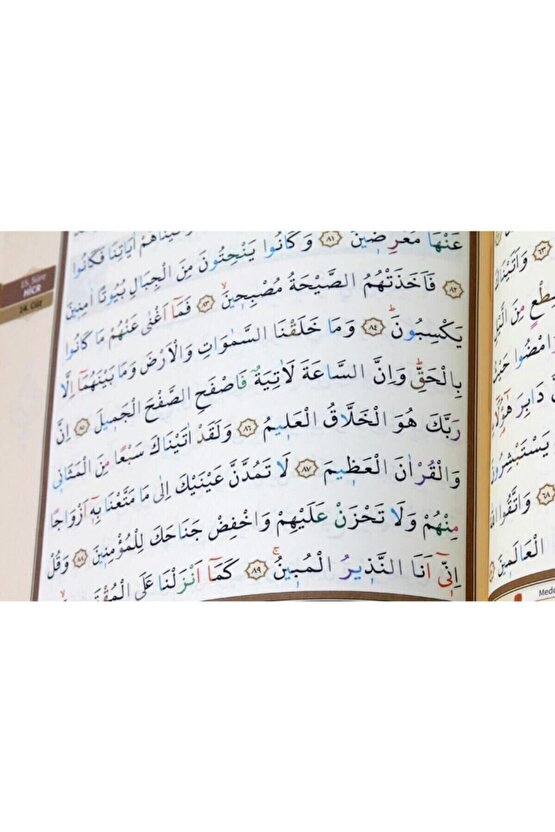 اٰيَاتِنَا فَكَانُوا
عَنْهَا مُعْرِضٖينَۙ ﴿٨١﴾ وَكَانُوا يَنْحِتُونَ مِنَ الْجِبَالِ بُيُوتًا اٰمِنٖينَ
﴿٨٢﴾ فَاَخَذَتْهُمُ الصَّيْحَةُ مُصْبِحٖينَۙ ﴿٨٣﴾ فَمَٓا اَغْنٰى عَنْهُمْ مَا كَانُوا
يَكْسِبُونَؕ ﴿٨٤﴾ وَمَا خَلَقْنَا السَّمٰوَاتِ وَالْاَرْضَ وَمَا بَيْنَهُمَٓا اِلَّا
بِالْحَقِّؕ وَاِنَّ السَّاعَةَ لَاٰتِيَةٌ فَاصْفَحِ الصَّفْحَ الْجَمٖيلَ ﴿٨٥﴾ اِنَّ
رَبَّكَ هُوَ الْخَلَّاقُ الْعَلٖيمُ ﴿٨٦﴾ وَلَقَدْ اٰتَيْنَاكَ سَبْعًا مِنَ الْمَثَانٖي
وَالْقُرْاٰنَ الْعَظٖيمَ ﴿٨٧﴾ لَا تَمُدَّنَّ عَيْنَيْكَ اِلٰى مَا مَتَّعْنَا بِهٖٓ اَزْوَاجًا
مِنْهُمْ وَلَا تَحْزَنْ عَلَيْهِمْ وَاخْفِضْ جَنَاحَكَ لِلْمُؤْمِنٖينَ ﴿٨٨﴾ وَقُلْ
اِنّٖٓي اَنَا النَّذٖيرُ الْمُبٖينُۚ ﴿٨٩﴾ كَمَٓا اَنْزَلْنَا عَلَى
15. Sûre
HİCR
14. Cüz
﴿٦٣﴾ وَاَتَيْنَاكَ
مِنَ
دَابِرَ
﴿٦٨﴾ وَاتَّقُوا
الْعَالَمٖينَ